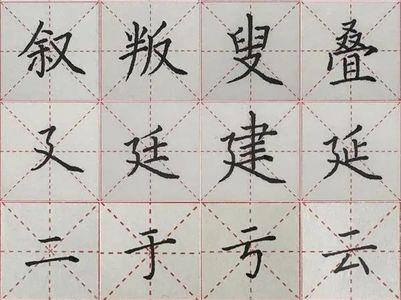 叙叛叟叠
廴廷建延
二于亏云